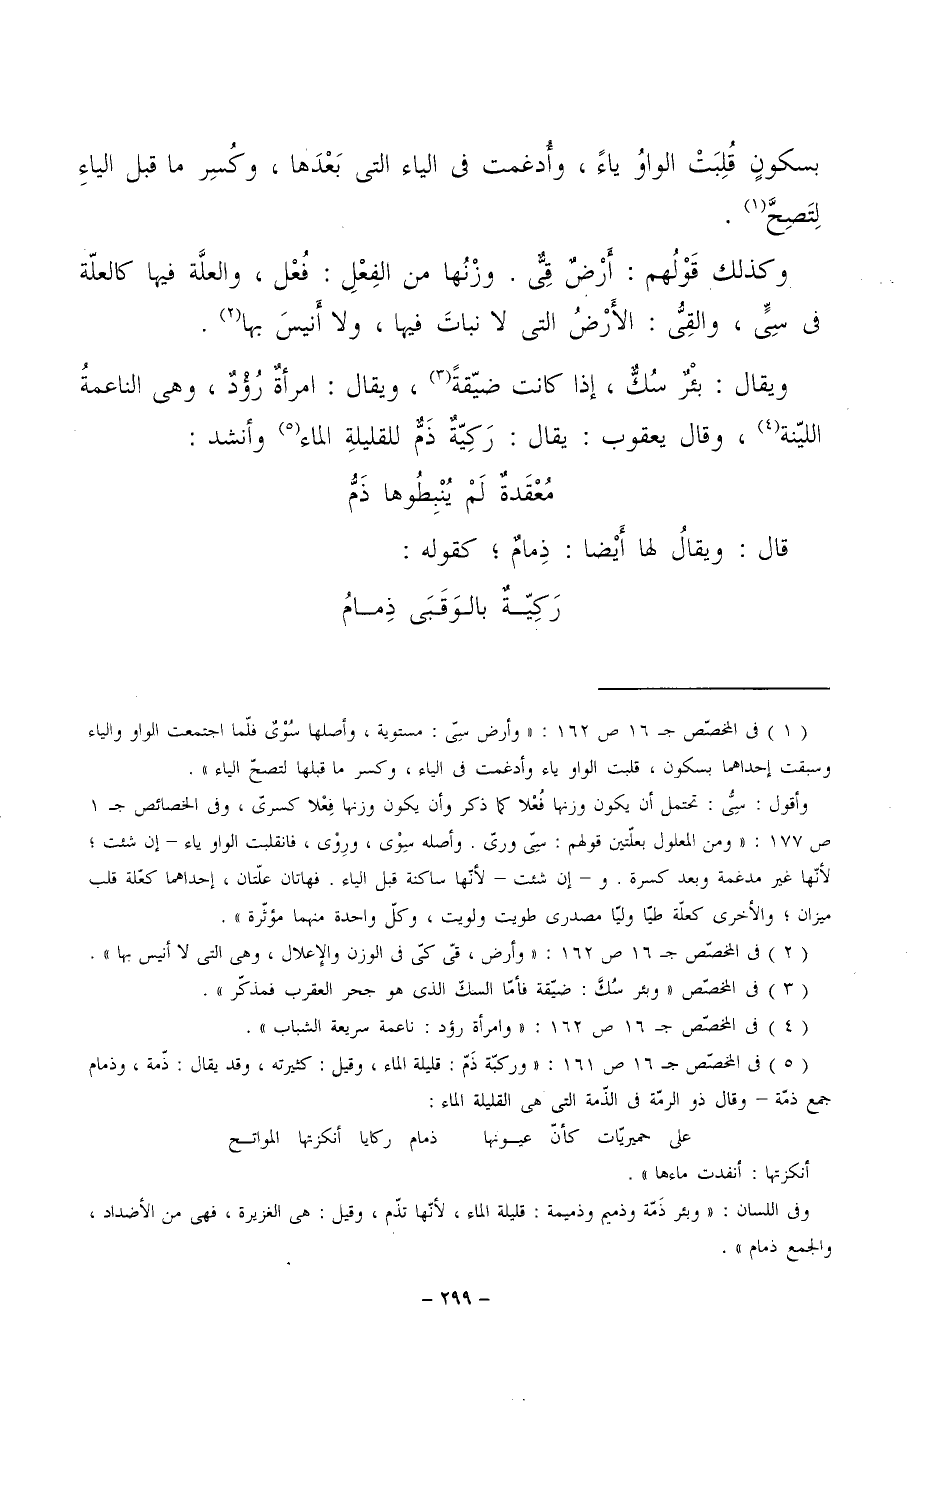 بسكونٍ قُلِبَتْ الواوُ ياءً ، وأُدغمت فى الياء التى بَعْدَها ، وكُسِر ما قبل الياءِ
لِتَصِحَّ(١) .
وكذلك قَوْلُهم : أَرْضٌ قِىٌّ . وزْنُها من الفِعْلِ : فُعْل ، والعلَّة فيها كالعلّة
فى سِىٍّ ، والقِىُّ : الأَرْضُ التى لا نباتَ فيها ، ولا أَنيسَ بها(٢) .
ويقال : بئْرٌ سُكٌّ ، إذا كانت ضيّقةً(٣) ، ويقال : امرأةٌ رُؤْدٌ ، وهى الناعمةُ
الليّنة(٤) ، وقال يعقوب : يقال : رَكِيّةٌ ذَمٌّ للقليلةِ الماء(٥) وأنشد :
مُعْقَدةٌ لَمْ يُنْبِطُوها ذَمُّ
قال : ويقالُ لها أَيْضا : ذِمامٌ ؛ كقوله :
رَكِيّــةٌ بالـوَقَبَى ذِمـامُ
( ١ ) فى المخصّص جـ ١٦ ص ١٦٢ : « وأرض سِىّ : مستوية ، وأصلها سُوْىٌ فلّما اجتمعت الواو والياء
وسبقت إحداهما بسكون ، قلبت الواو ياء وأدغمت فى الياء ، وكسر ما قبلها لتصحّ الياء » .
وأقول : سِىُّ : تحتمل أن يكون وزنها فُعْلا كما ذكر وأن يكون وزنها فِعْلا كسرىّ ، وفى الخصائص جـ ١
ص ١٧٧ : « ومن المعلول بعلّتين قولهم : سىّ ورىّ . وأصله سِوْى ، ورِوْى ، فانقلبت الواو ياء – إن شئت ؛
لأنّها غير مدغمة وبعد كسرة . و – إن شئت – لأنّها ساكنة قبل الياء . فهاتان علّتان ، إحداهما كعّلة قلب
ميزان ؛ والأخرى كعلّة طيّا وليّا مصدرى طويت ولويت ، وكلّ واحدة منهما مؤثّرة » .
( ٢ ) فى المخصّص جـ ١٦ ص ١٦٢ : « وأرض ، قىّ كىّ فى الوزن والإعلال ، وهى التى لا أنيس بها » .
( ٣ ) فى المخصّص « وبئر سُكَّ : ضيّقة فأمّا السكّ الذى هو جحر العقرب فمذكّر » .
( ٤ ) فى المخصّص جـ ١٦ ص ١٦٢ : « وامرأة رؤد : ناعمة سريعة الشباب » .
( ٥ ) فى المخصّص جـ ١٦ ص ١٦١ : « وركيّة ذَمّ : قليلة الماء ، وقيل : كثيرته ، وقد يقال : ذّمة ، وذمام
جمع ذمّة – وقال ذو الرمّة فى الذّمة التى هى القليلة الماء :
على حميريّات كأنّ عيـونها ذمام ركايا أنكزتها المواتـح
أنكزتها : أنفدت ماءها » .
وفى اللسان : « وبئر ذَمّة وذميم وذميمة : قليلة الماء ، لأنّها تذّم ، وقيل : هى الغزيرة ، فهى من الأضداد ،
والجمع ذمام » .
– ٢٩٩ –